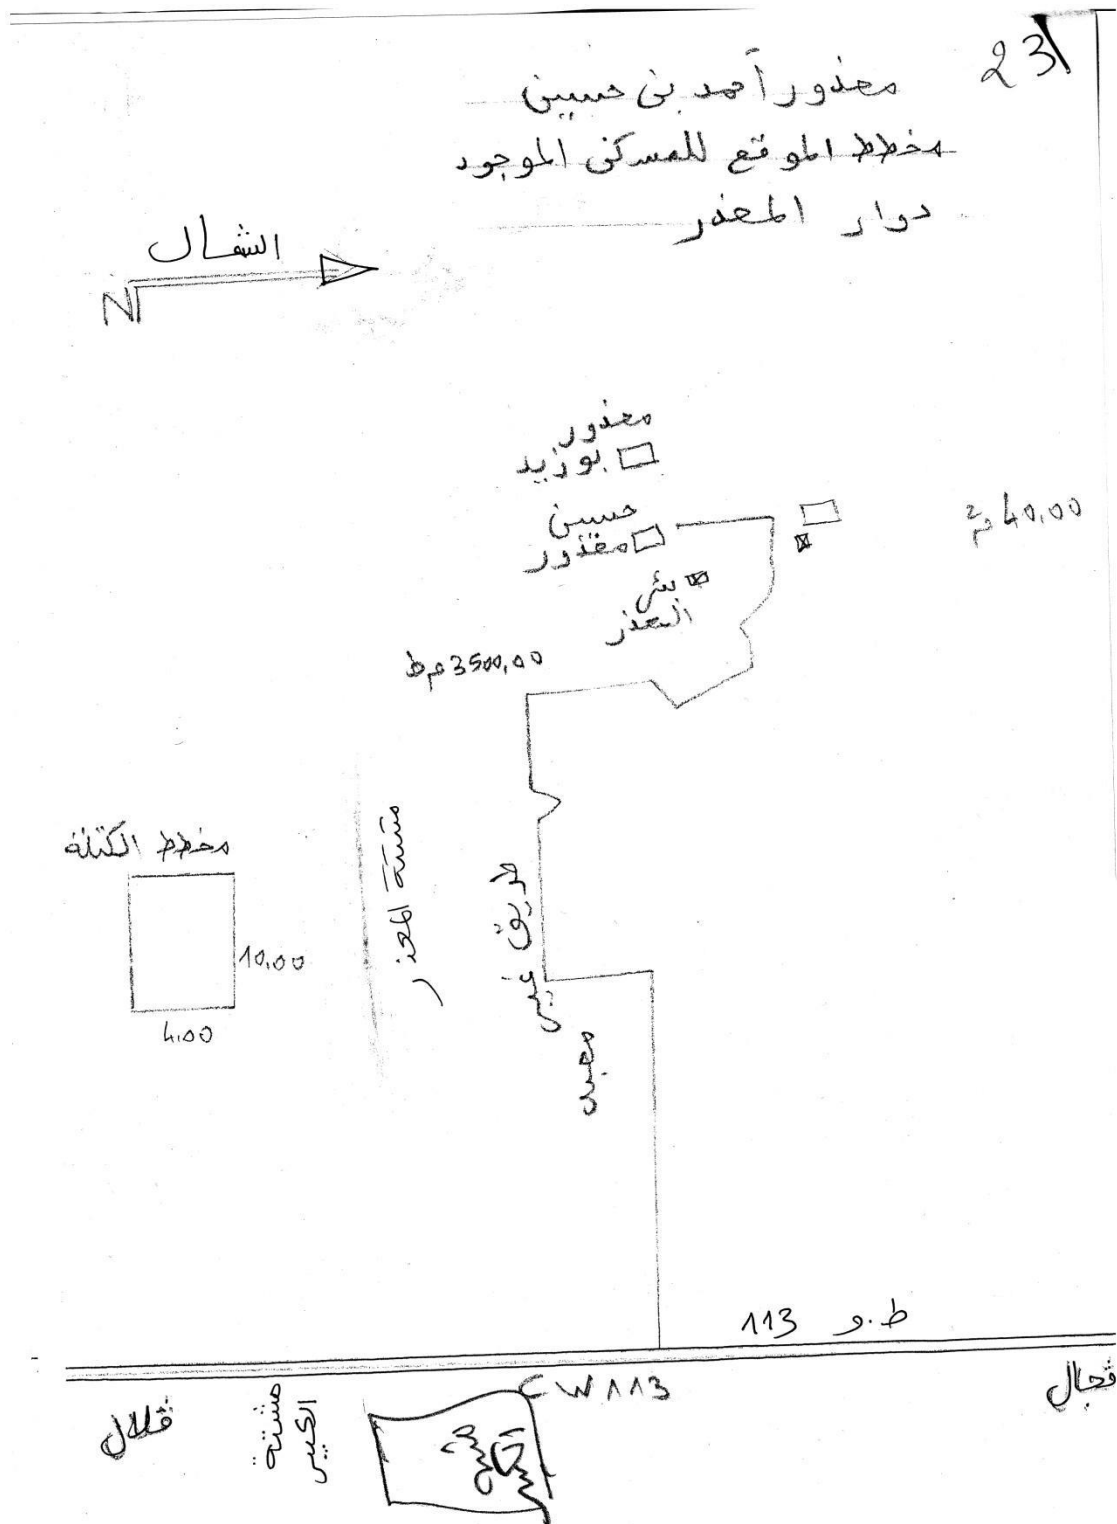 23
معذور أحمد بن حسين
مخطط الموقع للمسكن الموجود
دوار المعذر
الشمال
N
معذور
بوزيد
حسين
معذور
بئر
المعذر
40,00 م2
3500,00 م ط
مخطط الكتلة
10,00
4,00
مشتة المعذر
طريق غير
معبد
ط.و 113
CW113
ڤجال
ڤلال
مشتة
الكبير
مشتة